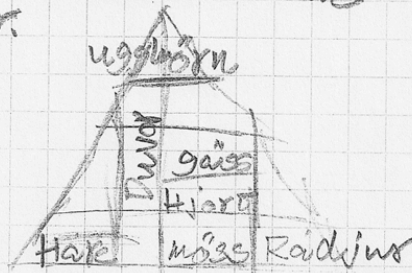 uggl örn
Duvor
gäss
Hjort
Hare möss Rådjur